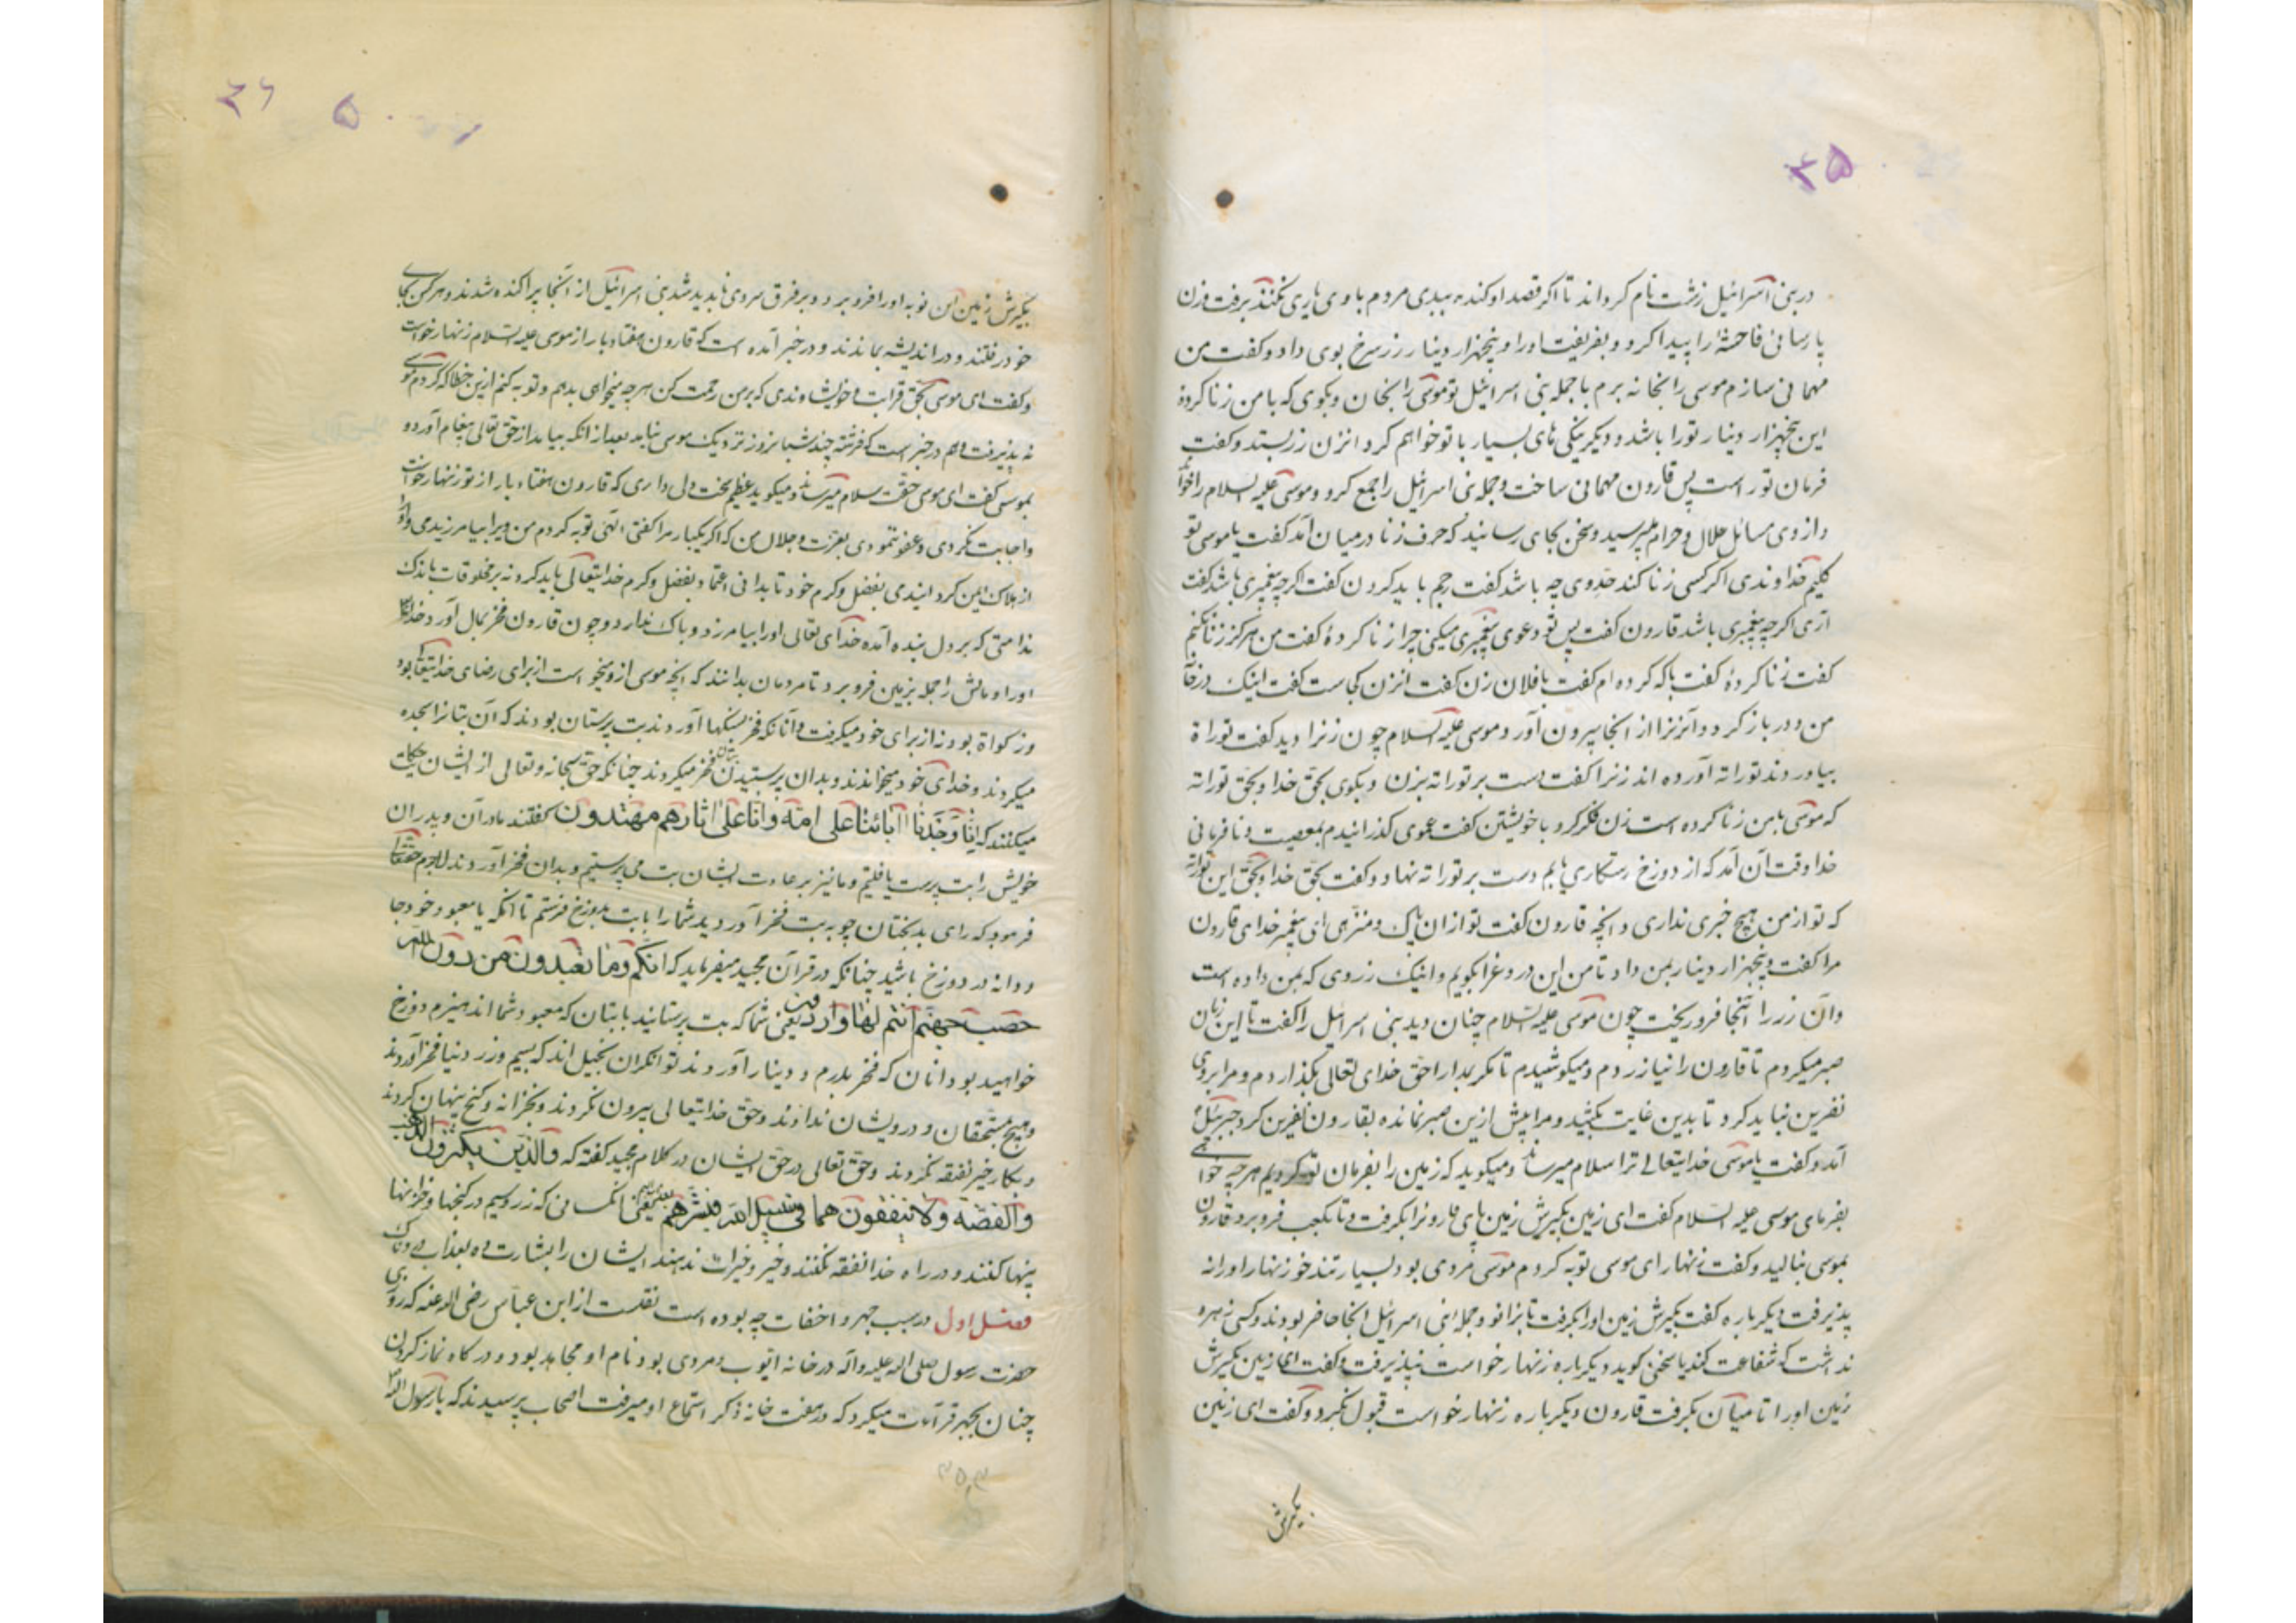 ۳۵
در بنی اسرائیل زشت نام کرداند تا اگر قصد او کند به بیدی مردم با وی یاری نکنند برفت وزن
پارسائی فاحشهٔ را پیدا کرد و بفریفت اورا و پنجهزار دینار زر سرخ بوی داد و کفت من
مهمانی سازم موسی را بخانه برم با جمله بنی اسرائیل تو موسی را بخان و بکوی که با من زنا کردهٔ
این پنجهزار دینار تورا باشد و دیکر نیکی های بسیار با تو خواهم کرد انزن زر بستد و کفت
فرمان توراست پس قارون مهمانی ساخت و جمله بنی اسرائیل را جمع کرد و موسی علیه السلام را
و از وی مسائل حلال و حرام میپرسید و سخن بجای رسانید که حرف زنا در میان آمد کفت یا موسی تو
کلیم خداوندی اکر کسی زنا کند حدوی چه باشد کفت رجم باید کردن کفت اکرچه پیغمبری باشد کفت
آری اکرچه پیغمبری باشد قارون کفت پس تو دعوی پیغمبری میکنی چرا زنا کردهٔ کفت من هرکز زنا نکنم
کفت زنا کردهٔ کفت با که کرده ام کفت با فلان زن کفت انزن کجاست کفت اینک در
من و در باز کرد و آنزنرا از انجا بیرون آورد موسی علیه السلام چون زنرا دید کفت توراة
بیاوردند توراته آورده اند زنرا کفت دست بر توراته بزن و بکوی بحق خدا و بحق توراته
که موسی با من زنا کرده است زن فکر کرد با خویشتن کفت عموی کذرانیدم بمعصیت و نافرمانی
خدا وقت آن آمد که از دوزخ رستکاری یابم دست بر توراته نهاد و کفت بحق خدا و بحق این توراته
که تو از من هیچ خبری نداری و انچه قارون کفت تو از ان پاک و منزهی ای پیغمبر خدای قارون
مرا کفت و پنجهزار دینار بمن داد تا من این دروغرا بکویم و اینک زروی که بمن داده است
وان زر را آنجا فرو ریخت چون موسی علیه السلام چنان دید بنی اسرائیل را کفت تا این زمان
صبر میکردم تا قارون را نیازردم و میکوشیدم تا مکر حق خدای تعالی بکذارد م و مرا بروی
نفرین نباید کرد تا بدین غایت بکشید و مرا بیش ازین صبر نمانده بقارون نفرین کرد جبرئیل
آمد و کفت یا موسی خدایتعالی ترا سلام میرساند و میکوید که زمین را بفرمان تو کردیم هرچه خواهی
بفرمای موسی علیه السلام کفت ای زمین بکیرش زمین پای قارونرا بکرفت و تا بکعب فرو برد قارون
بموسی بنالید و کفت زنهار ای موسی توبه کردم موسی مردی بود بسیار تند خو زنهار اورا نه
پذیرفت دیکرباره کفت بکیرش زمین اورا بکرفت تا بزانو و جمله بنی اسرائیل انجا حاضر بودند و کسی زهره
نداشت که شفاعت کند یا سخن کوید دیکرباره زنهار خواست نپذیرفت و کفت ای زمین بکیرش
زمین اورا تا میان بکرفت قارون دیکرباره زنهار خواست قبول نکرد و کفت ای زمین
بکیرش
۳۶ ۵۰
بکیرش زمین این نوبه اورا فرو برد و بر فرق سروی ناپدید شد بنی اسرائیل از آنجا پراکنده شدند و هر کس بجای
خود رفتند و در اندیشه بماندند و در خبر آمده است که قارون هفتاد بار از موسی علیه السلام زنهار خواست
و کفت ای موسی بحق قرابت و خویشاوندی که بر من رحمت کن هرچه میخواهی بدهم و توبه کنم ازین خطا که کردم
نه پذیرفت و هم در خبر است که فرشته چند شبانروز نزدیک موسی نیامد بعد از انکه بیامد از حق تعالی پیغام آورد و
بموسی کفت ای موسی حقت سلام میرساند و میکوید عظیم سخت دل داری که قارون هفتاد بار از تو زنهار خواست
و اجابت نکردی و عفو ننمودی بعزت و جلال من که اکر یکبار مرا کفتی الهی توبه کردم من ویرا بیامرزیدمی و اورا
از هلاک ایمن کردانیدمی بفضل و کرم خود تا بدانی اعتماد بفضل و کرم خدایتعالی باید کرد نه بر مخلوقات باندک
ندامتی که بر دل بنده آمده خدای تعالی اورا بیامرزد و باک ندارد و چون قارون فخر بمال آورد خدایتعالی
اورا و مالش را جمله بزمین فرو برد تا مردمان بدانند که انچه موسی ازو میخواست از برای رضای خدایتعالی بود
و زکواة بود نه از برای خود میکرفت و آنانکه فخر بسنکها آوردند بت پرستان بودند که آن بتانرا سجده
میکردند و خدای خود میخواندند و بدان پرستیدن بتان فخر میکردند چنانکه حق سبحانه و تعالی از ایشان حکایت
میکنند که انا وجدنا آبائنا علی امة وانا علی اثارهم مهتدون کفتند مادران و پدران
خویش را بت پرست یافتیم و ما نیز بر عادت ایشان بت می پرستیم و بدان فخر آوردند لاجرم حقتعالی
فرمود که رای بدبختان چو به بت فخر آوردید شما را با بت بدوزخ فرستم تا انکه با معبود خود جا
ودانه در دوزخ باشید چنانکه در قرآن مجید میفرماید که انکم وما تعبدون من دون الله
حصب جهنم انتم لها واردون یعنی شما که بت پرستانید با بتان که معبود شما اند هیزم دوزخ
خواهید بود و انان که فخر بدرم و دینار آوردند توانکران بخیل اند که بسیم و زر دنیا فخر آوردند
و هیچ مستحقان و درویشان ندادند و حق خدایتعالی بیرون نکردند و بخزانه و کنج پنهان کردند
و بکار خیر نفقه نکردند و حق تعالی در حق ایشان در کلام مجید کفته که والذین یکنزون الذهب
والفضة ولا ینفقون هما فی سبیل الله فبشرهم یعنی انکسانی که زر و سیم در کنجها و خزانها
پنها کنند و در راه خدا نفقه نکنند و خیر و خیرات ندهند ایشان را بشارت ده بعذاب دردناک
فصل اول در سبب جهر و اخفات چه بوده است نقلست از ابن عباس رضی الله عنه که روزی
حضرت رسول صلی الله علیه واله در خانه ایوب و مردی بود نام او مجاهد بود و در کاه نماز کردن
چنان بجهر قرآءت میکرد که در هفت خانه ذکر استماع او میرفت اصحاب پرسیدند که یا رسول الله
۳۵۳